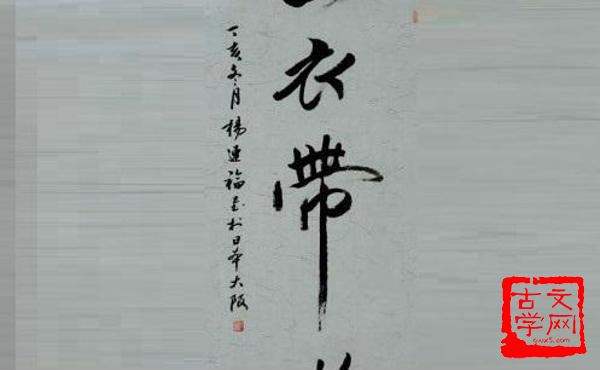 衣帶
丁亥冬月楊連福書於日本大阪
古文
学网
gwx5.com